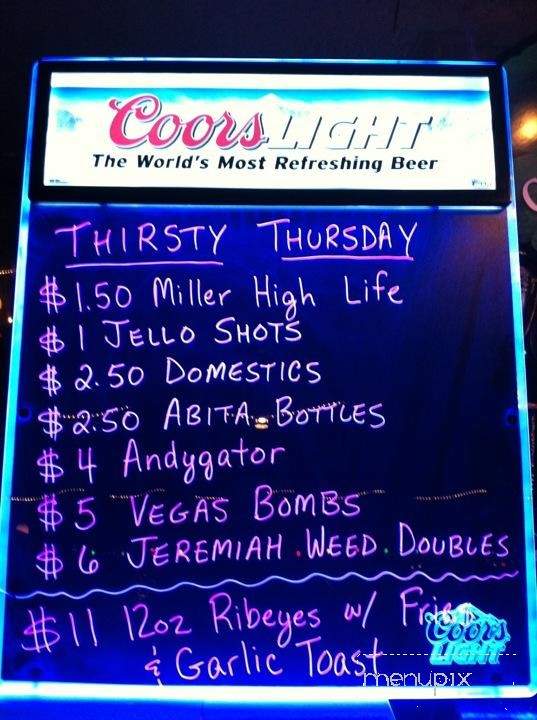 Coors LIGHT
The World's Most Refreshing Beer
THIRSTY THURSDAY
$1.50 Miller High Life
$1 JELLO SHOTS
$2.50 DOMESTICS
$2.50 ABITA BOTTLES
$4 Andygator
$5 VEGAS BOMBS
$6 JEREMIAH WEED DOUBLES
$11 12oz Ribeyes w/ Fries
& Garlic Toast
Coors
LIGHT
menupix